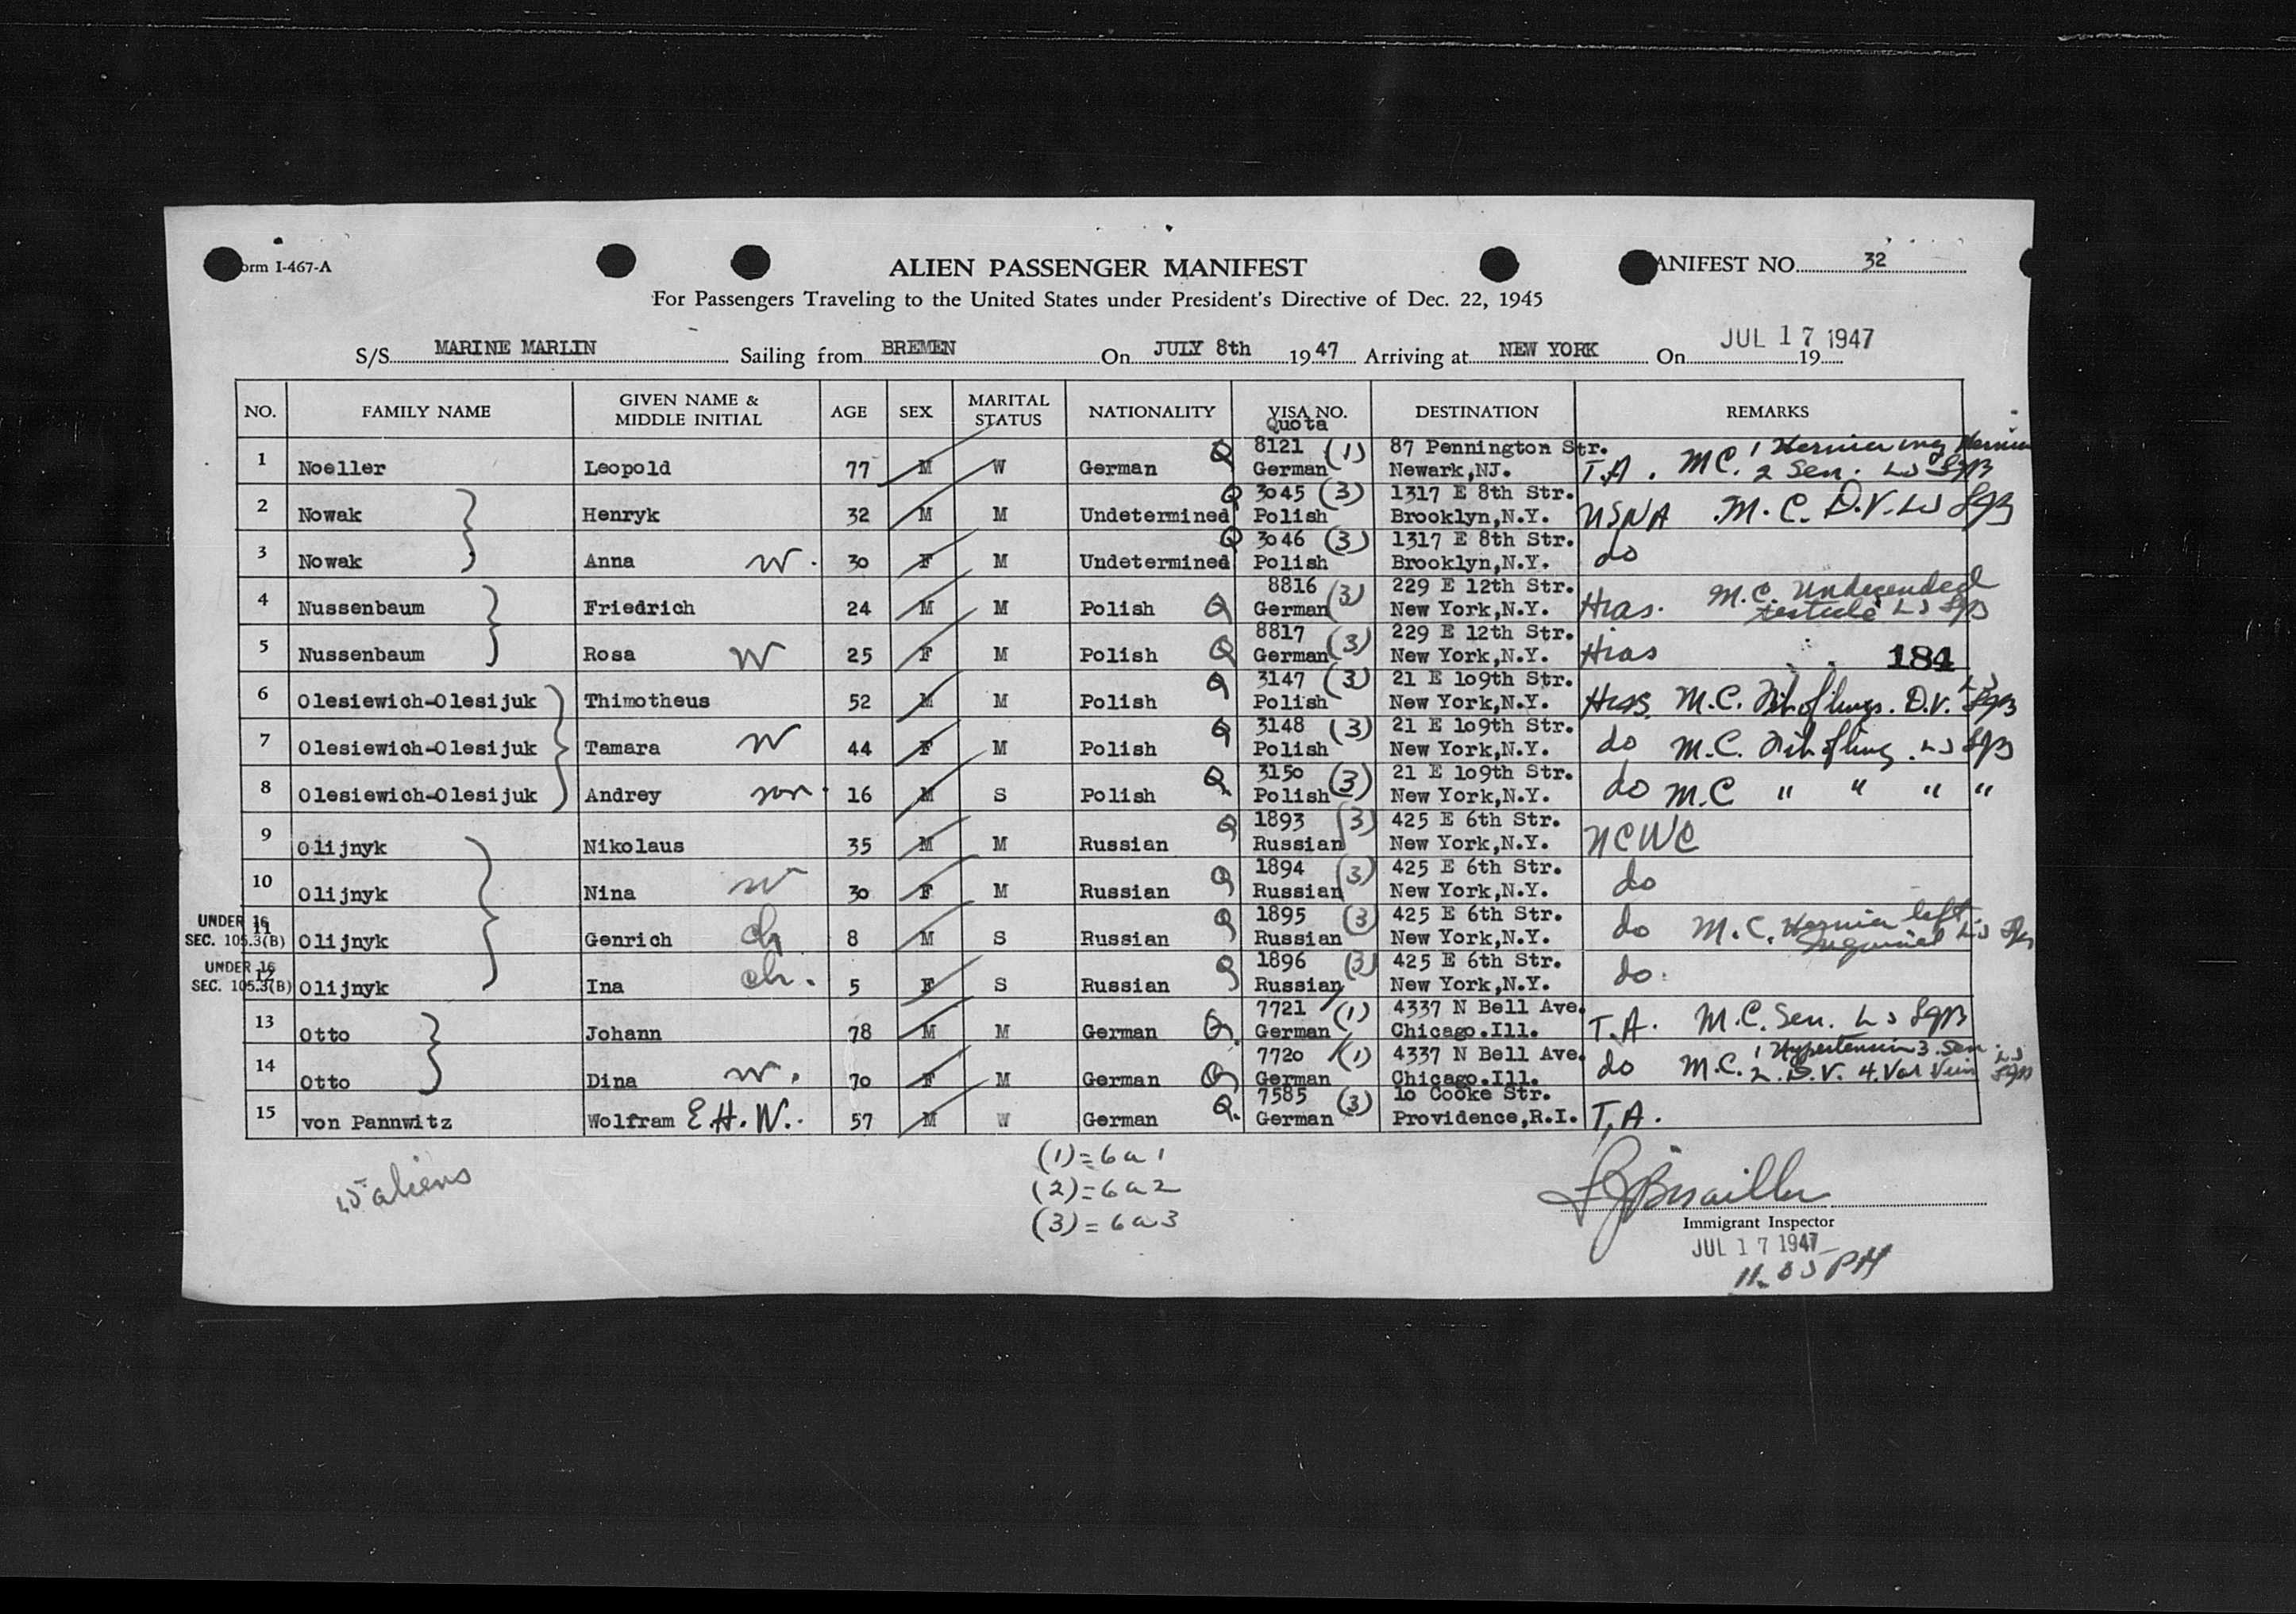 orm I-467-A
ALIEN PASSENGER MANIFEST
ANIFEST NO. 32
For Passengers Traveling to the United States under President's Directive of Dec. 22, 1945
S/S MARINE MARLIN Sailing from BREMEN On JULY 8th 1947 Arriving at NEW YORK On JUL 17 1947 19
NO. FAMILY NAME GIVEN NAME & MIDDLE INITIAL AGE SEX MARITAL STATUS NATIONALITY VISA NO. Quota DESTINATION REMARKS
1 Noeller Leopold 77 M W German Q 8121 (1) German 87 Pennington Str. Newark,NJ. T.A. M.C. 1 Hernia ing Hernia 2 Sen.
2 Nowak Henryk 32 M M Undetermined Q 3045 (3) Polish 1317 E 8th Str. Brooklyn,N.Y. USNA M.C. D.V.
3 Nowak Anna W. 30 F M Undetermined Q 3046 (3) Polish 1317 E 8th Str. Brooklyn,N.Y. do
4 Nussenbaum Friedrich 24 M M Polish Q 8816 (3) German 229 E 12th Str. New York,N.Y. Hias. M.C. Undecended testicle
5 Nussenbaum Rosa W 25 F M Polish Q 8817 (3) German 229 E 12th Str. New York,N.Y. Hias 184
6 Olesiewich-Olesijuk Thimotheus 52 M M Polish Q 3147 (3) Polish 21 E 109th Str. New York,N.Y. Hias. M.C. Fib of lungs. D.V.
7 Olesiewich-Olesijuk Tamara W 44 F M Polish Q 3148 (3) Polish 21 E 109th Str. New York,N.Y. do M.C. Fib of lung.
8 Olesiewich-Olesijuk Andrey son 16 M S Polish Q 3150 (3) Polish 21 E 109th Str. New York,N.Y. do M.C " " " "
9 Olijnyk Nikolaus 35 M M Russian Q 1893 (3) Russian 425 E 6th Str. New York,N.Y. NCWC
10 Olijnyk Nina W 30 F M Russian Q 1894 (3) Russian 425 E 6th Str. New York,N.Y. do
UNDER 16 SEC. 105.3(B) 11 Olijnyk Genrich ch 8 M S Russian Q 1895 (3) Russian 425 E 6th Str. New York,N.Y. do M.C. Hernia left Inguinal
UNDER 16 SEC. 105.3(B) 12 Olijnyk Ina ch. 5 F S Russian Q 1896 (3) Russian 425 E 6th Str. New York,N.Y. do
13 Otto Johann 78 M M German Q. 7721 (1) German 4337 N Bell Ave. Chicago.Ill. T.A. M.C. Sen.
14 Otto Dina W. 70 F M German Q 7720 (1) German 4337 N Bell Ave. Chicago.Ill. do M.C. 1 Hypertension 3. Sen. 2. D.V. 4. Var Vein
15 von Pannwitz Wolfram E.H.W. 57 M W German Q. 7585 (3) German 10 Cooke Str. Providence,R.I. T.A.
15 aliens
(1) = 6a1
(2) = 6a2
(3) = 6a3
Immigrant Inspector
JUL 17 1947
11.05 PM